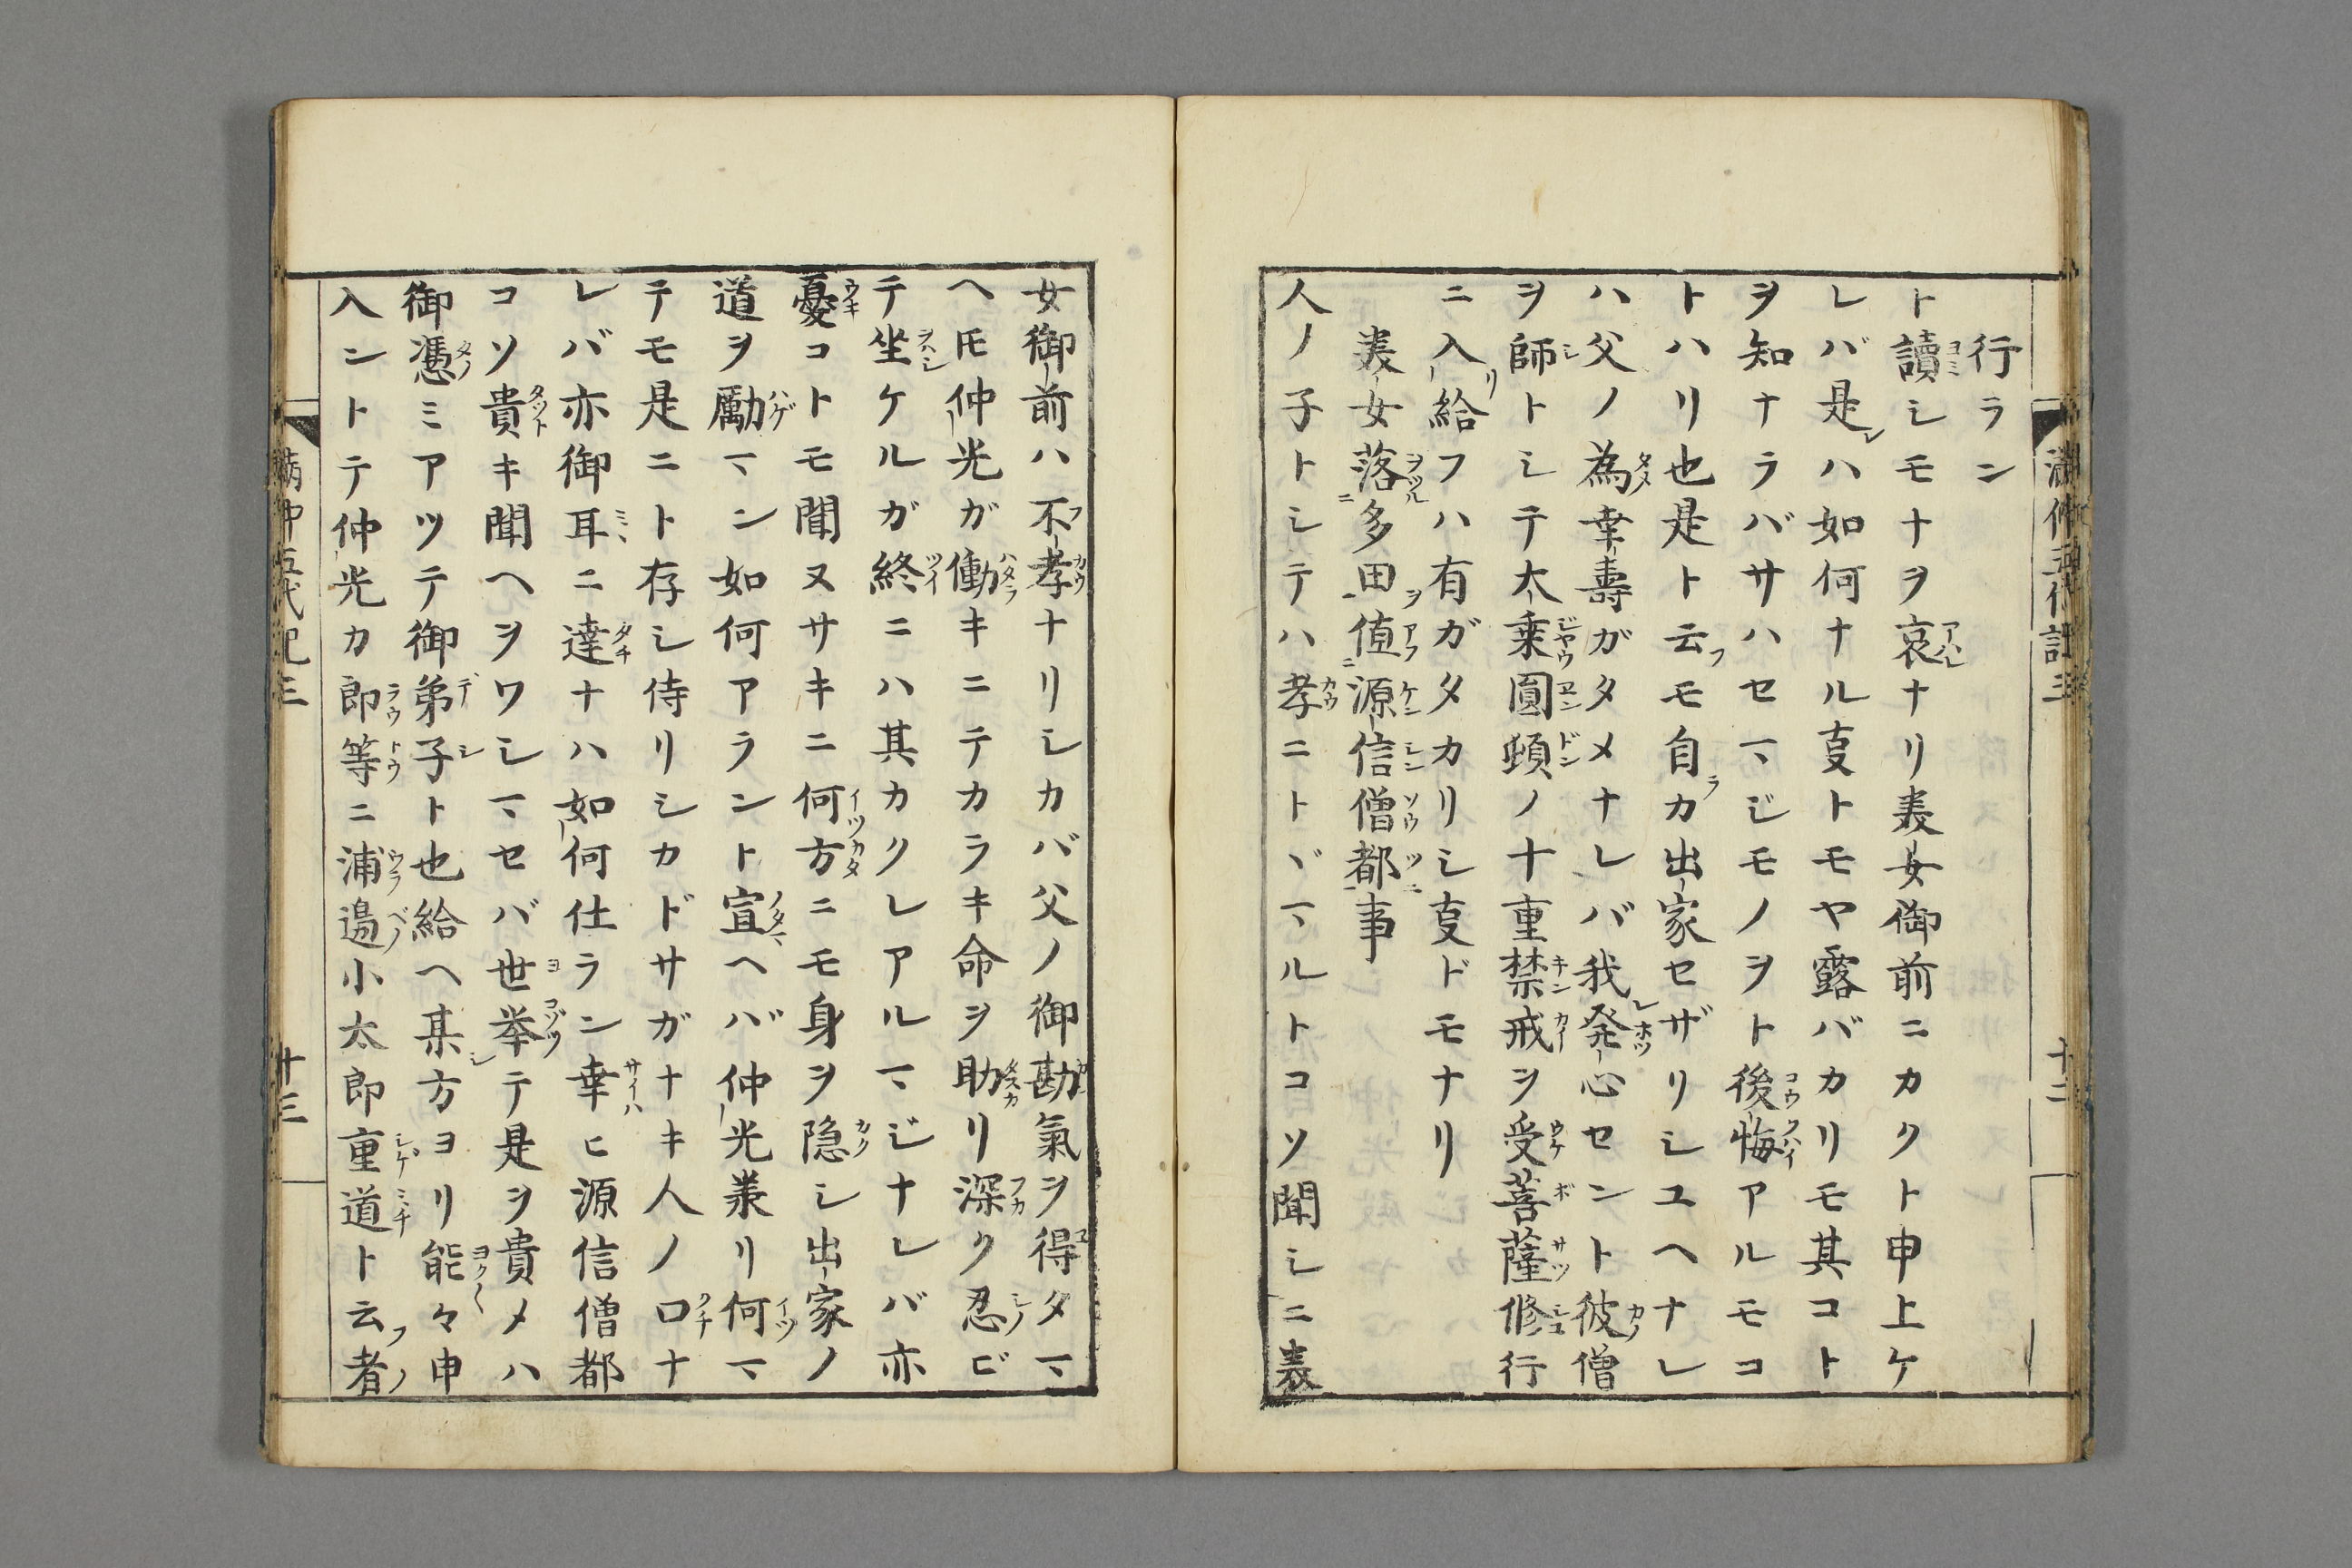 満仲五代記三
十二
行ラン
ト讀シモナヲ哀ナリ美女御前ニカクト申上ケ
レバ是ハ如何ナル叓トモヤ露バカリモ其コト
ヲ知ナラバサハセマジモノヲト後悔アルモコ
トハリ也是ト云モ自カ出家セザリシユヘナレ
ハ父ノ為幸壽ガタメナレバ我発心セント彼僧
ヲ師トシテ大乗圓頓ノ十重禁戒ヲ受菩薩修行
ニ入給フハ有ガタカリシ叓ドモナリ
美女落多田値源信僧都事
人ノ子トシテハ孝ニトヾマルトコソ聞シニ美
女御前ハ不孝ナリシカバ父ノ御勘氣ヲ得タマ
ヘ𪜈仲光ガ働キニテカラキ命ヲ助リ深ク忍ビ
テ坐ケルガ終ニハ其カクレアルマジナレバ亦
憂コトモ聞ヌサキニ何方ニモ身ヲ隠シ出家ノ
道ヲ勵マン如何アラント宣ヘバ仲光羕リ何マ
テモ是ニト存シ侍リシカドサガナキ人ノ口ナ
レバ亦御耳ニ達ナハ如何仕ラン幸ヒ源信僧都
コソ貴キ聞ヘヲワシマセバ世挙テ是ヲ貴メハ
御憑ミアツテ御弟子ト也給ヘ某方ヨリ能々申
入ントテ仲光カ郎等ニ浦邉小太郎重道ト云者
満仲五代記三
十三